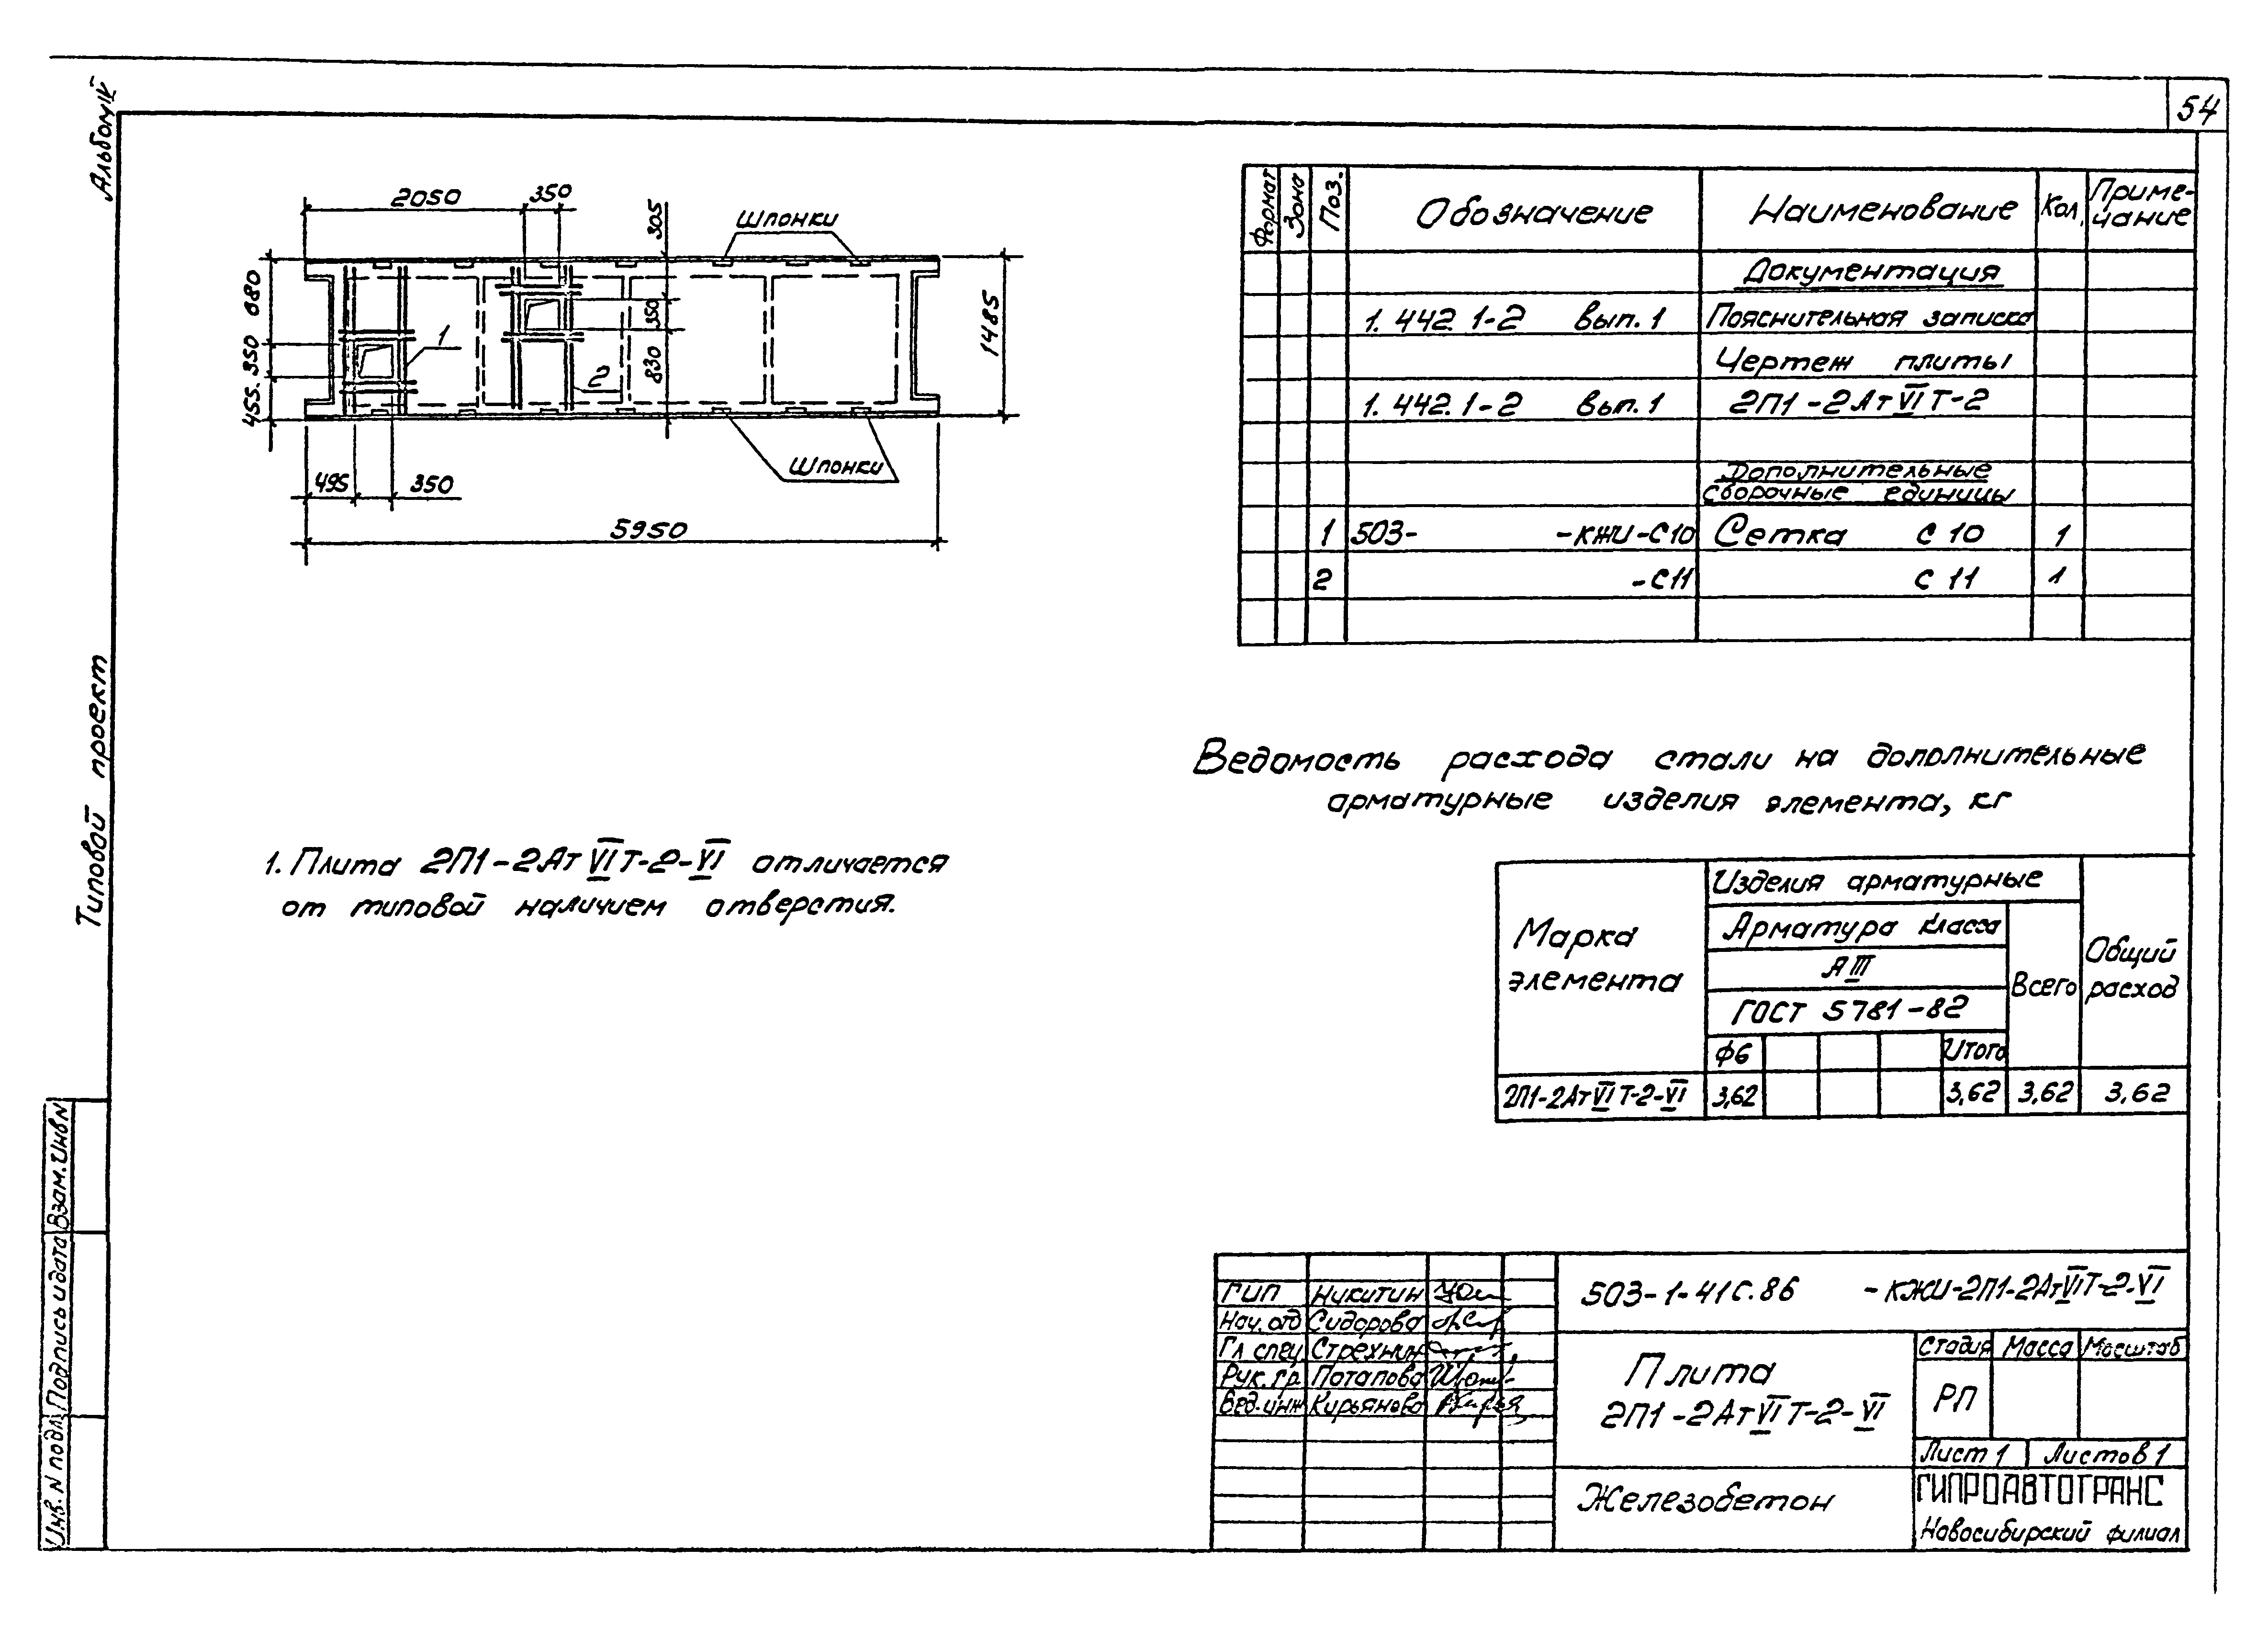 54
Альбом IV
Типовой проект
Взам. инв N
Подпись и дата
Инв. N подл.
2050
350
305
Шпонки
680
350
455
1
2
350
830
1485
Шпонки
495
350
5950
1. Плита 2П1-2АтVIТ-2-VI отличается
от типовой наличием отверстия.
Формат Зона Поз. Обозначение Наименование Кол. Приме-
чание
Документация
1.442.1-2 вып. 1 Пояснительная записка
Чертеж плиты
1.442.1-2 вып. 1 2П1-2АтVIТ-2
Дополнительные
сборочные единицы
1 503- -КЖИ-С10 Сетка С 10 1
2 -С11 С 11 1
Ведомость расхода стали на дополнительные
арматурные изделия элемента, кг
Марка
элемента
Изделия арматурные
Арматура класса
АIII
ГОСТ 5781-82
Ф6 Итого
Всего
Общий
расход
2П1-2АтVIТ-2-VI 3,62 3,62 3,62 3,62
ГИП Никитин
Нач. отд Сидорова
Гл. спец Стрехнин
Рук. гр. Потапова
Вед. инж Кирьянова
503-1-41с.86 -КЖИ-2П1-2АтVIТ-2-VI
Плита
2П1-2АтVIТ-2-VI
Стадия Масса Масштаб
РП
Лист 1 Листов 1
Железобетон
ГИПРОАВТОТРАНС
Новосибирский филиал